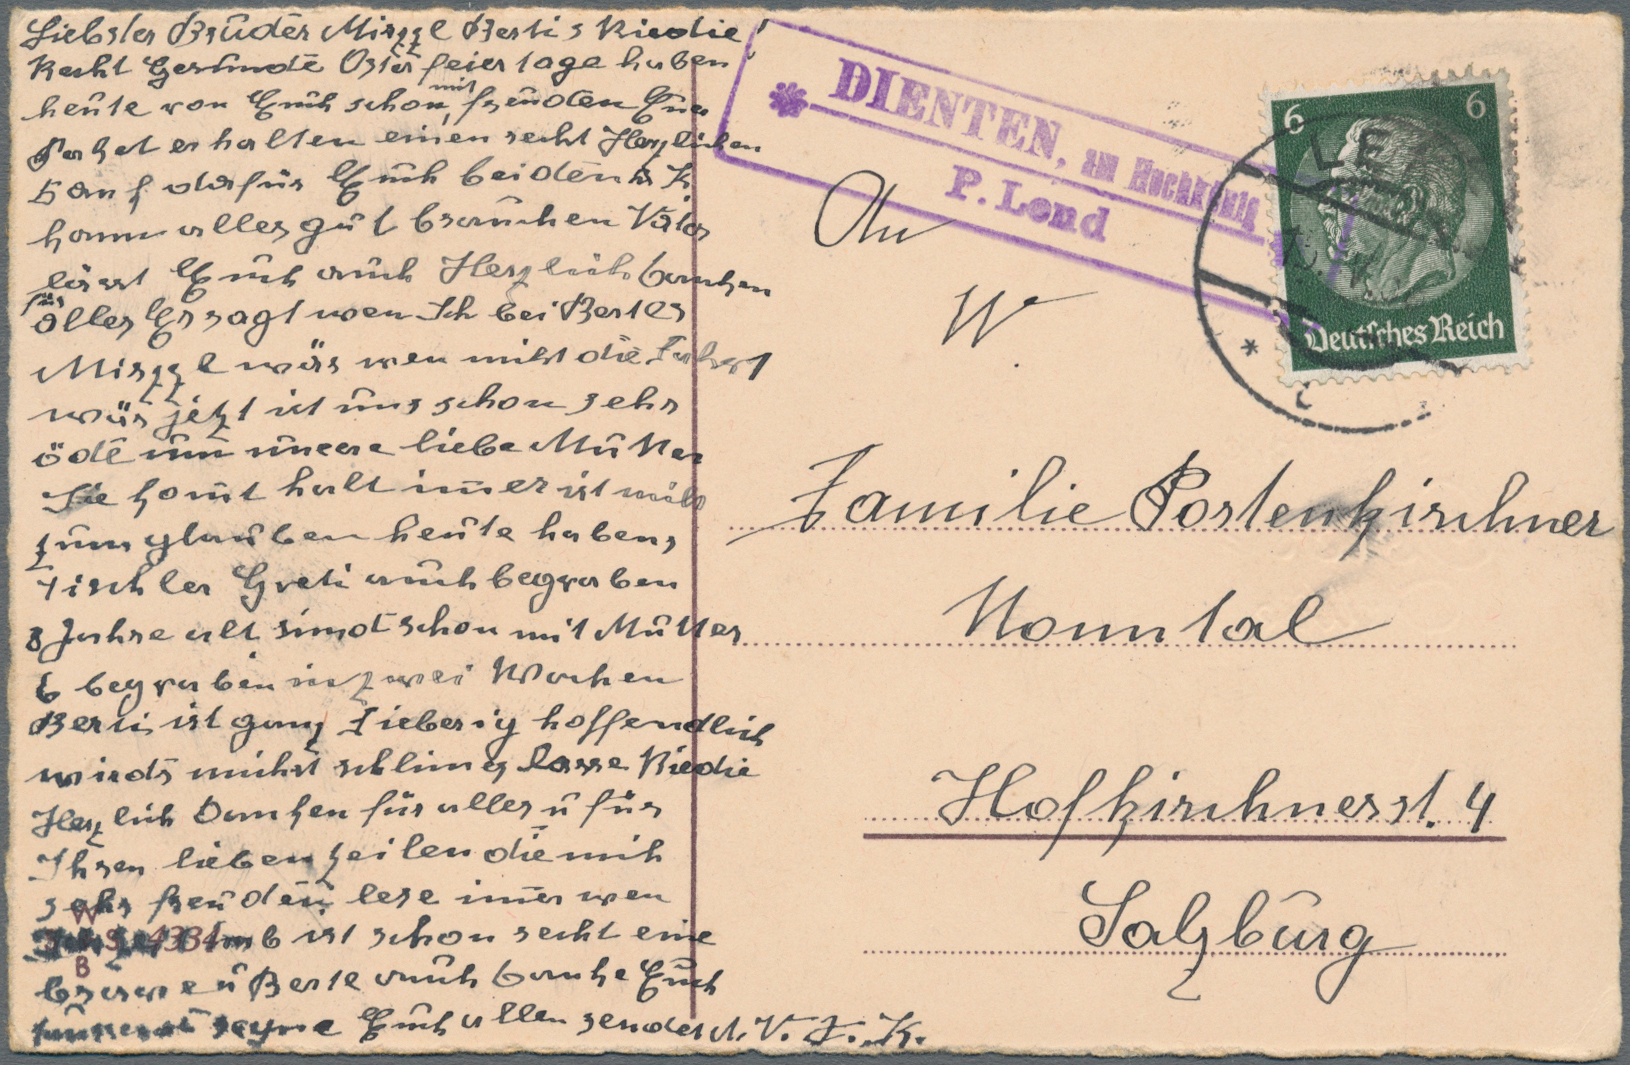 Liebster Brüder Mizzl Berti s Riedie
Recht Gesunde Osterfeiertage haben
heute von Euch schon mit freuden Eure
erhalten einen recht Herzlichen
Dank dafür Euch beiden
alles gut brauchen Vater
lässt Euch auch Herzlich Danken
für alles Er sagt wen Ich bei Bertes
Mizzl wär wen nicht die Fahrt
wär jetzt ist uns schon sehr
öde um unsere liebe Mutter
Sie komt halt imer ist nicht
zum glauben heute habens
Tischler Greti auch begraben
8 Jahre alt sind schon mit Mutter
6 begraben in zwei Wochen
Berti ist ganz Fieberig hoffendlich
wirds nicht schlimes lasse Riedie
Herzlich Danken für alles u für
Ihren lieben zeilen die mich
sehr freuden lese imer wen
ist schon recht eine
brave u Berte auch Danke Euch
Euch allen sendet V. F. K.
W
4334
B
DIENTEN, am Hochkönig
P. Lend
LEND
6 6
Deutsches Reich
An
W
Familie Postenkirchner
Nonntal
Hofkirchnerst. 4
Salzbürg